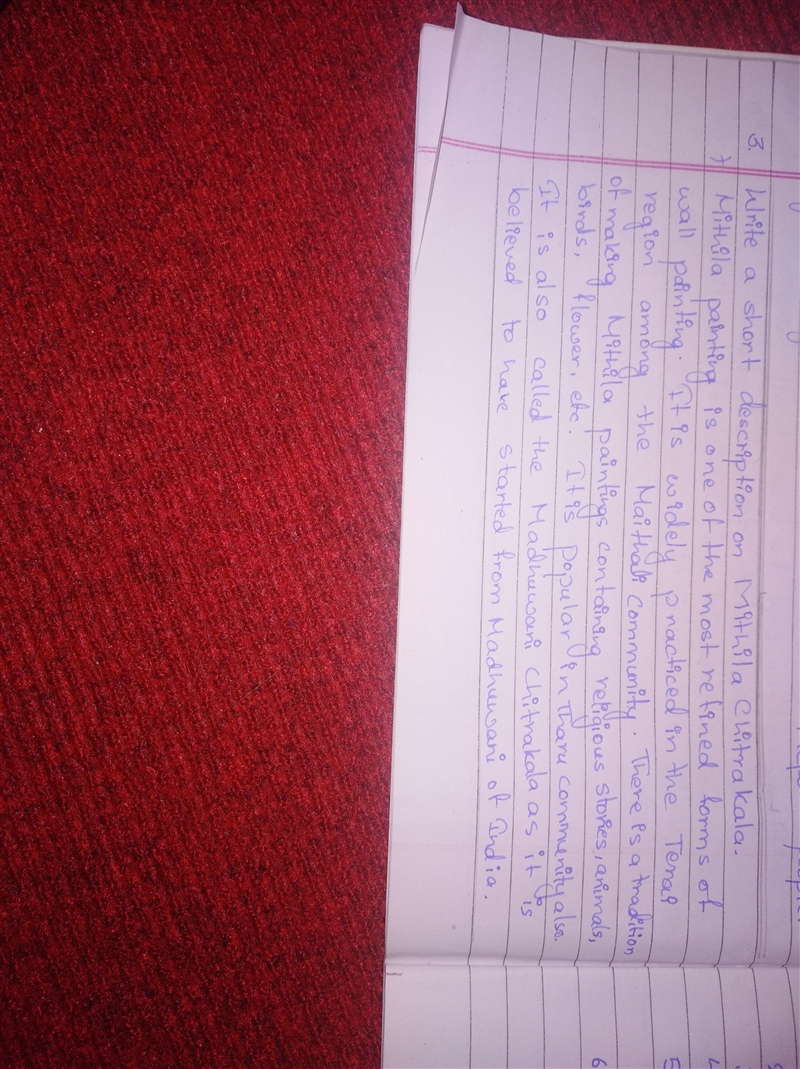 3. Write a short description on Mithila Chitrakala.
→ Mithila painting is one of the most refined forms of
wall painting. It is widely practiced in the Terai
region among the Maithali community. There is a tradition
of making Mithila paintings containing religious stories, animals,
birds, flower, etc. It is popular in Tharu community also.
It is also called the Madhuwani Chitrakala as it is
believed to have started from Madhuwani of India.
5
6